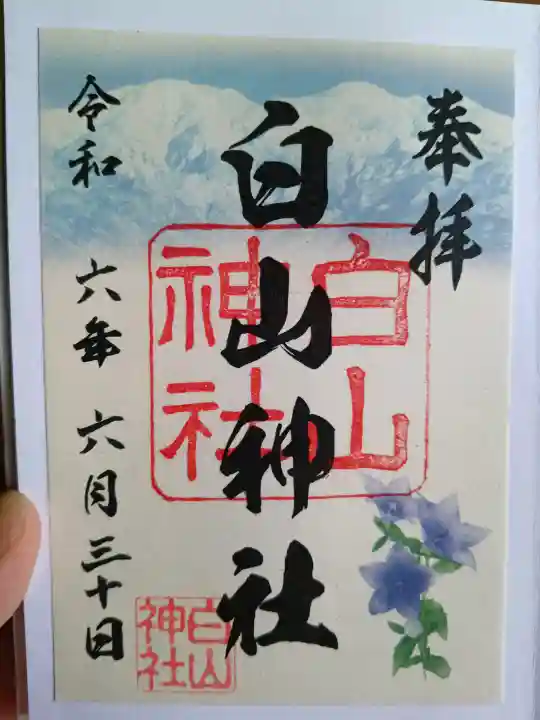 奉拝
白山神社
白山
神社
令和 六年 六月三十日
白山
神社